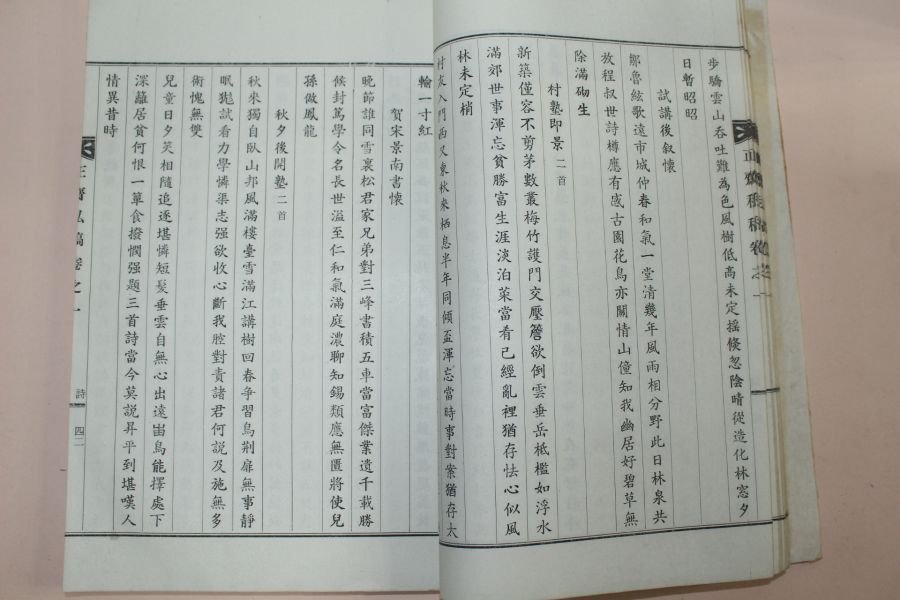 步驕雲山吞吐難為色風樹低高未定搖倏忽陰晴從造化林窓夕
日暫昭昭
試講後叙懷
鄒魯絃歌遠市城仲春和氣一堂清幾年風雨相分野此日林泉共
放程叔世詩樽應有感古園花鳥亦關情山僮知我幽居好碧草無
除滿砌生
村塾即景 二首
新築僅容不剪茅數叢梅竹護門交壓簷欲倒雲垂岳柢檻如浮水
滿郊世事渾忘貧勝富生涯淡泊菜當肴已經亂裡猶存怯心似風
林未定梢
村 入門西又東秋來栖息半年同傾盃渾忘當時事對案猶存太
輪一寸紅
賀宋景南書懷
晚節誰同雪裏松君家兄弟對三峰書積五車當富傑業遺千載勝
候封篤學令名長世溢至仁和氣滿庭濃聊知錫類應無匱將使兒
孫做鳳龍
秋夕後開塾 二首
秋來獨自臥山邦風滿樓臺雪滿江講樹回春爭習鳥荆扉無事靜
眠狵試看力學憐渠志强欲收心斷我腔對責諸君何說及施無多
術愧無雙
兒童日夕笑相隨追逐堪憐短髮垂雲自無心出遠峀鳥能擇處下
深籬居貧何恨一簞食撥憫强題三首詩當今莫說昇平到堪嘆人
情異昔時
正齋私稿卷之一
詩
四二